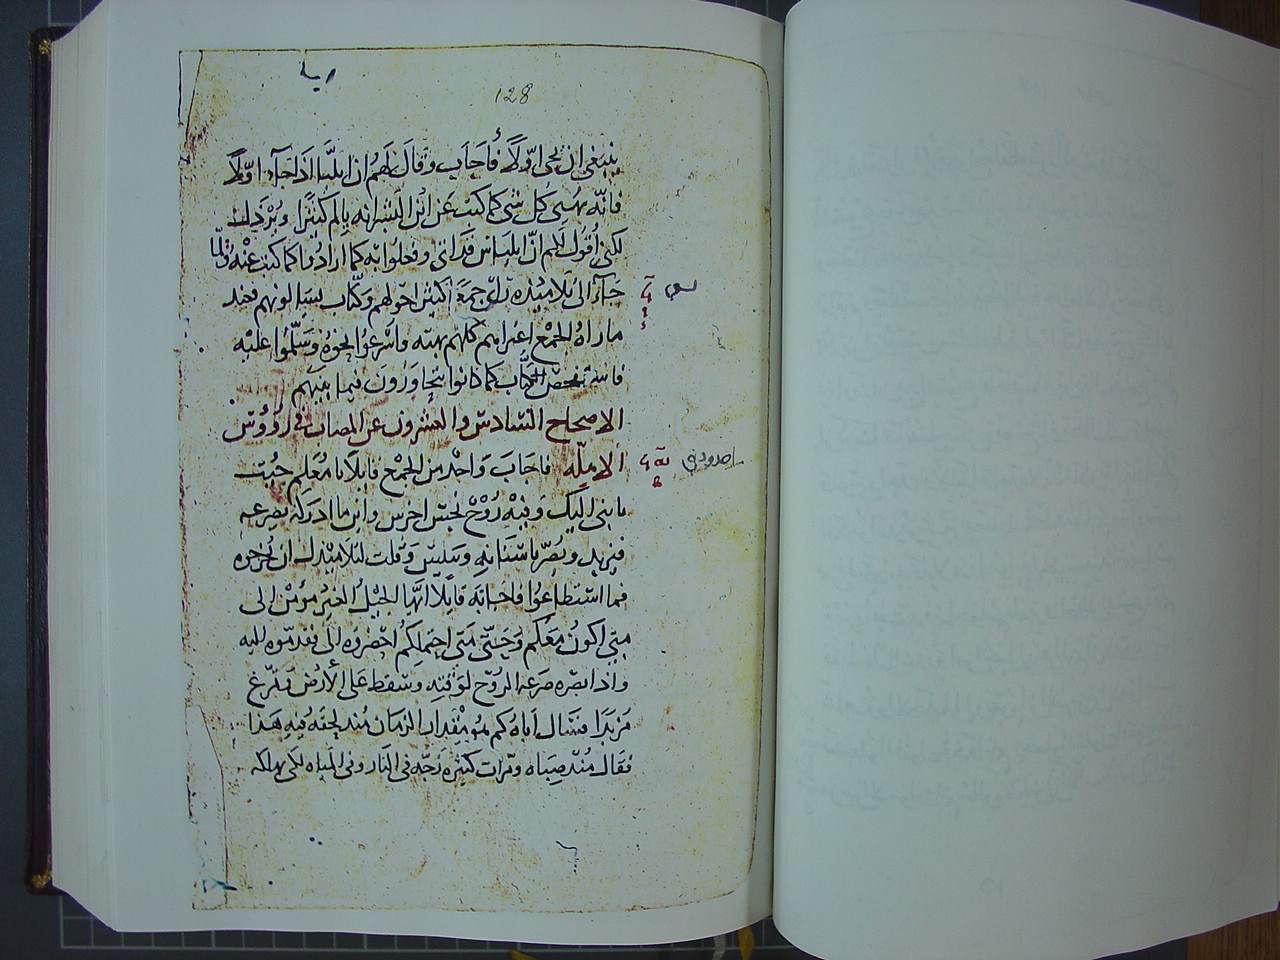 128
ينبغي ان يجي اوّلاً فأجَاب وقَالَ لهَم ان ايليّا اذا جَآء اوّلاً
فانّه يهُيي كُل شي كما كتبَ عَن ابْن البشر انه يالم كثيرًا ويُرْذل
لكني أقُول لكم انّ ايليَاس قداتى وفعلوُا به كما ارادوُا كما كتبَ عنْه فلمّا
جَآء الى تلاميْذه رأى جمعًا كثيرًا حولهم وكتّاب يسَالونهم فعند
ماراهُ الجمْع اعتراهم كلهُم بهته واسْرعوُا نحوه وَسَلّموُا عليْه
فاستفحصَ الكتّاب كما ذانوا يتجَاوَرُون فيما بينَهم
الاصحاح السّادسَ والعشرون عن المصاب في رؤوسْ
الاهلّه فاجَابَ وَاحْد من الجمْع قايلاً يا مُعَلم جيت
يابني اليكَ وَفيْه رُوْحْ نجسَ اخرس واين ما ادركهُ يصرعه
فيزبد ويُصرّ باسْنانهِ وييَبسَ وقُلت لتلاميذك ان يخرجوه
فما اسْتطاعوُا فاجابَه قايلاً ايّها الجيْلُ الغير مؤمنْ الى
متى اكونُ معَكم وَحتّى مَتي احتملكم احْضروُه اليّ فقدمّوه اليه
واذ ابصَره صَرعَه الروُح لوَقتهِ وسَقط على الأرْض يتمرّغ
مُزبَدًا فسَال اباهُ كم هوُ مقْدار الزمَان مُنذ لحقه فيهِ هَذا
فقال مُنْذ صِبَاه ومرّات كثيْره زَجّه في النّار وفي المياه لكي يهلكه